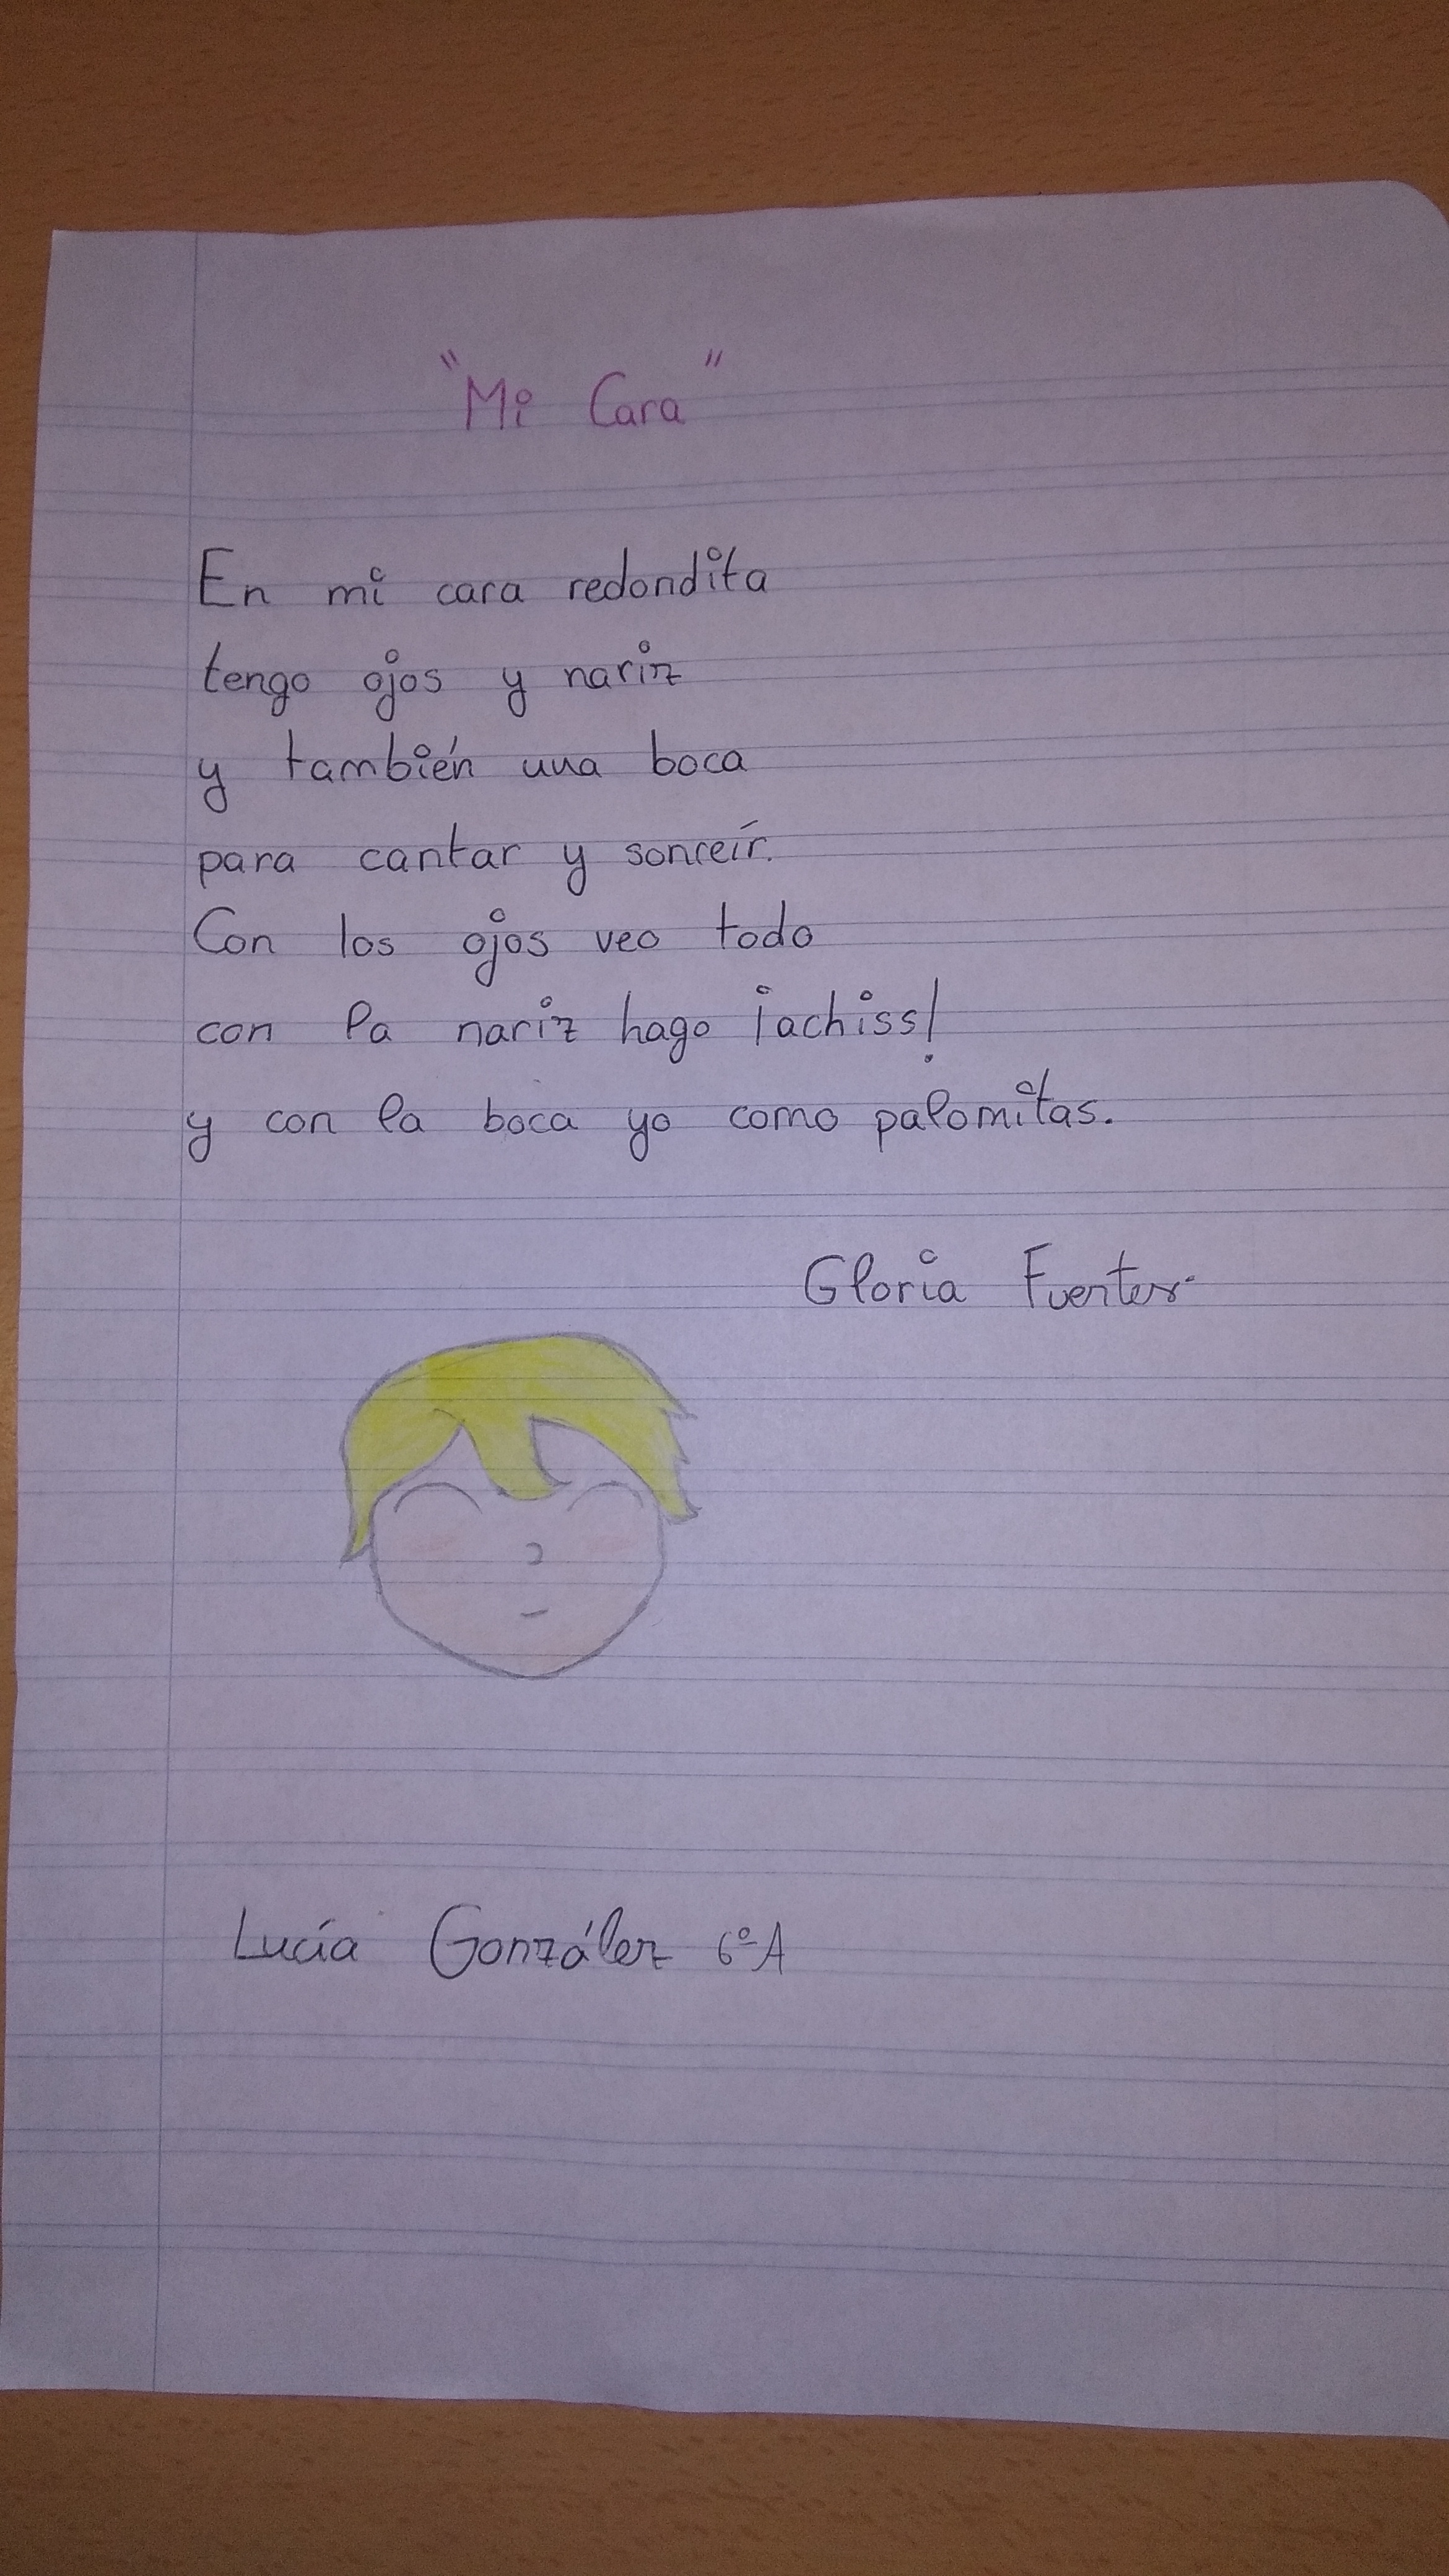 "Mi Cara"
En mi cara redondita
tengo ojos y nariz
y también una boca
para cantar y sonreír.
Con los ojos veo todo
con la nariz hago ¡achiss!
y con la boca yo como palomitas.
Gloria Fuertes
Lucía González 6º A